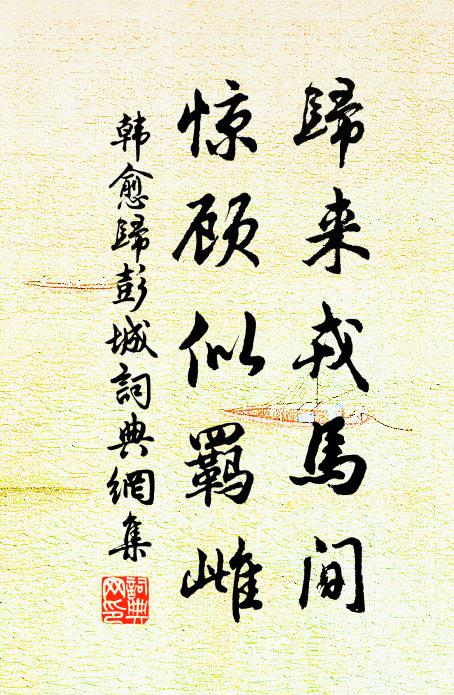 歸来戎馬间
惊顾似羁雌
韩愈歸彭城詞典網集
詞典